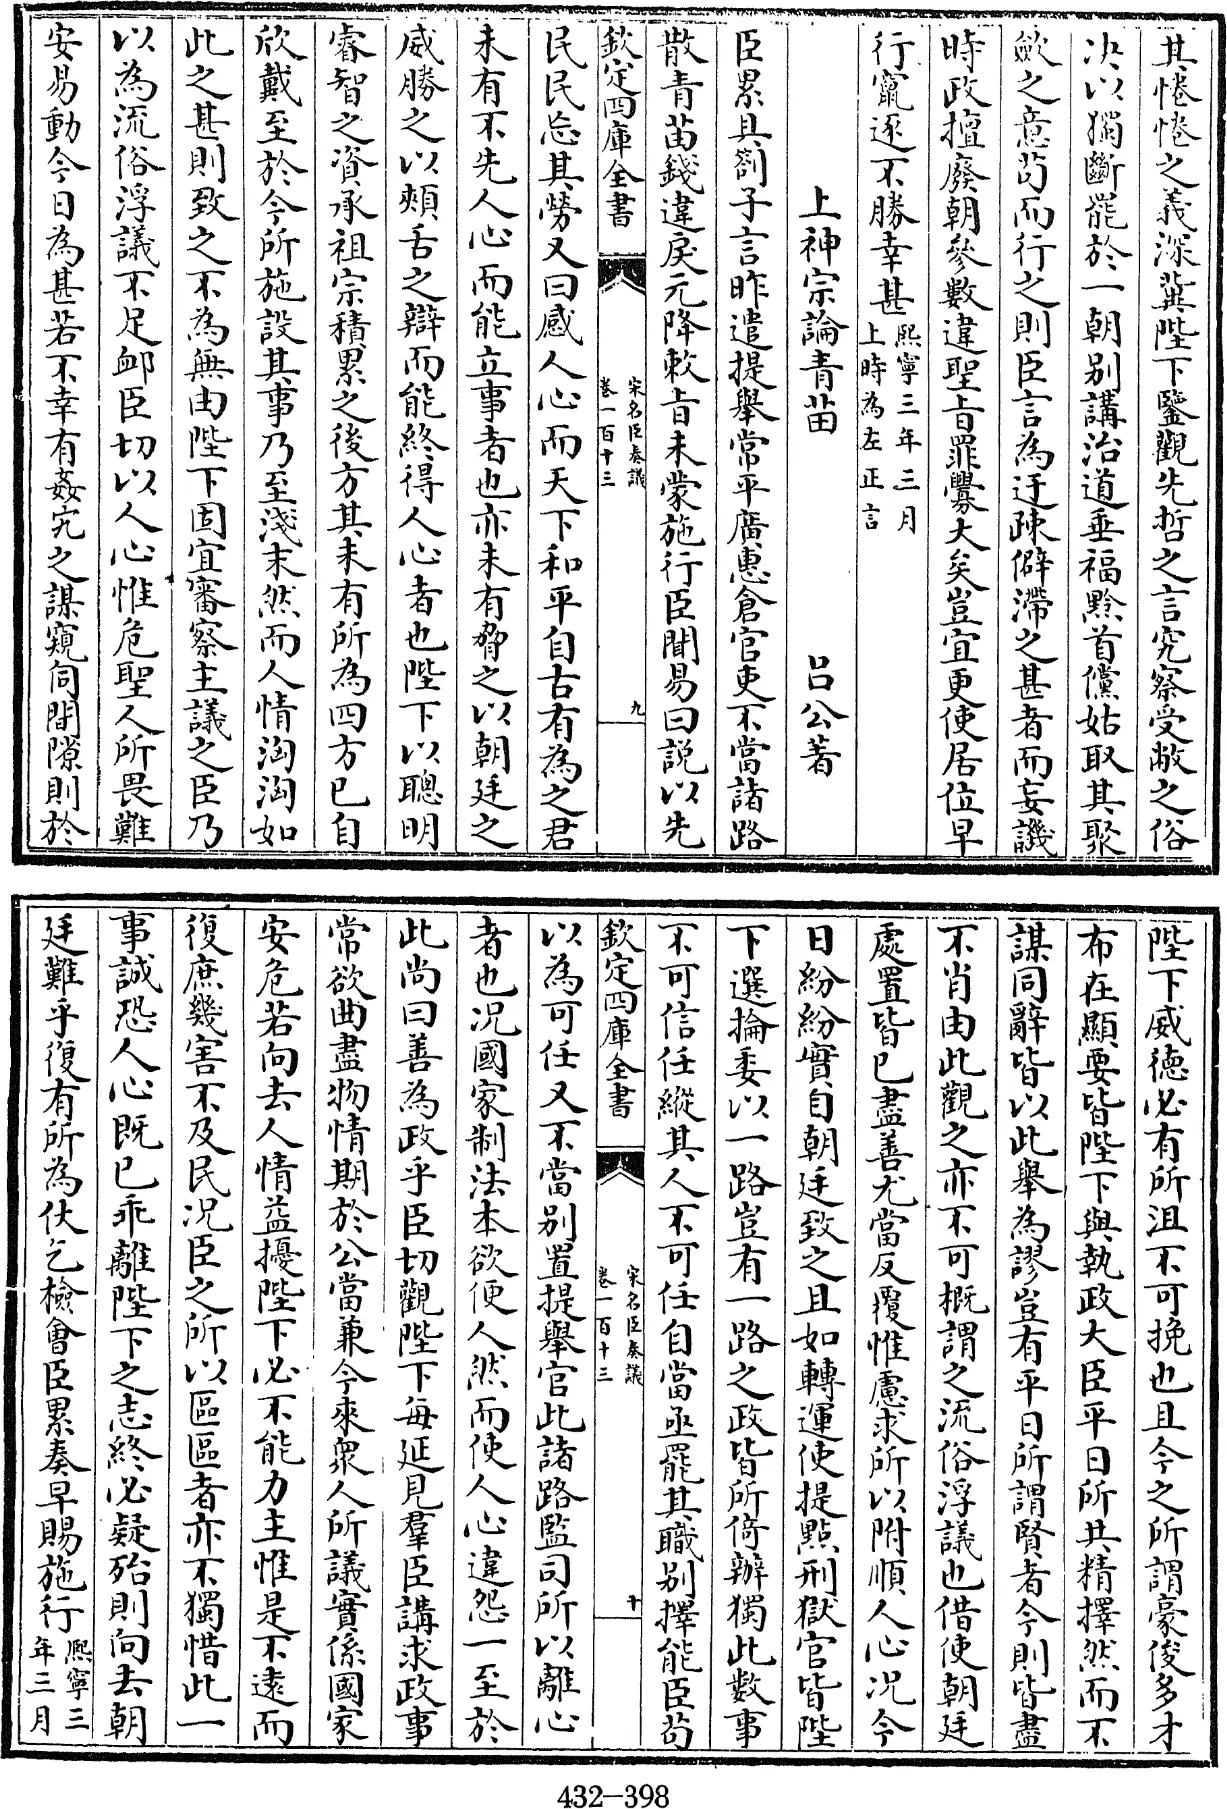 其惓惓之義深冀陛下鑒觀先哲之言究察受敝之俗
决以獨斷罷於一朝别講治道垂福黔首儻姑取其聚
歛之意苟而行之則臣言為迂疎僻滯之甚者而妄譏
時政擅廢朝參數違聖旨罪釁大矣豈宜更使居位早
行竄逐不勝幸甚熙寧三年三月上時為左正言
上神宗論青苗 吕公著
臣累具劄子言昨遣提舉常平廣惠倉官吏不當諸路
散青苗錢違戾元降敕旨未蒙施行臣聞易曰説以先
欽定四庫全書 宋名臣奏議 卷一百十三 九
民民忘其勞又曰感人心而天下和平自古有為之君
未有不先人心而能立事者也亦未有脅之以朝廷之
威勝之以頰舌之辯而能終得人心者也陛下以聰明
睿智之資承祖宗積累之後方其未有所為四方已自
欣戴至於今所施設其事乃至淺末然而人情洶洶如
此之甚則致之不為無由陛下固宜審察主議之臣乃
以為流俗浮議不足卹臣切以人心惟危聖人所畏難
安易動今日為甚若不幸有姦宄之謀窺伺間隙則於
陛下威德必有所沮不可挽也且今之所謂豪俊多才
布在顯要皆陛下與執政大臣平日所共精擇然而不
謀同辭皆以此舉為謬豈有平日所謂賢者今則皆盡
不肖由此觀之亦不可概謂之流俗浮議也借使朝廷
處置皆已盡善尤當反覆惟慮求所以附順人心况今
日紛紛實自朝廷致之且如轉運使提點刑獄官皆陛
下選掄委以一路豈有一路之政皆所倚辦獨此數事
不可信任縱其人不可任自當亟罷其職别擇能臣苟
欽定四庫全書 宋名臣奏議 卷一百十三 十
以為可任又不當别置提舉官此諸路監司所以離心
者也况國家制法本欲便人然而使人心違怨一至於
此尚曰善為政乎臣切觀陛下每延見羣臣講求政事
常欲曲盡物情期於公當兼今來衆人所議實係國家
安危若向去人情益擾陛下必不能力主惟是不遠而
復庶幾害不及民况臣之所以區區者亦不獨惜此一
事誠恐人心既已乖離陛下之志終必疑殆則向去朝
廷難乎復有所為伏乞檢會臣累奏早賜施行熙寧三年三月
432—398